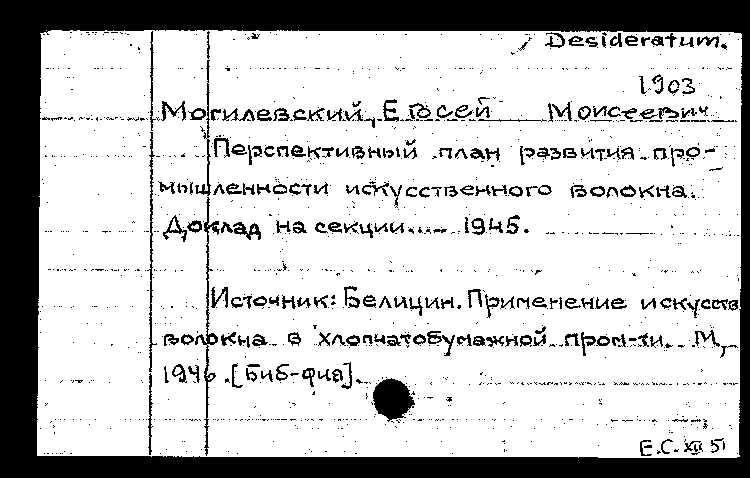 Desideratum.
1903
Могилевский, Евсей Моисеевич
Перспективный план развития про-
мышленности искусственного волокна.
Доклад на секции.... 1945.
Источник: Белицин. Применение искусств
волокна в хлопчатобумажной пром-ти. М,
1946. [Биб-фия].
Е.С. XII 51